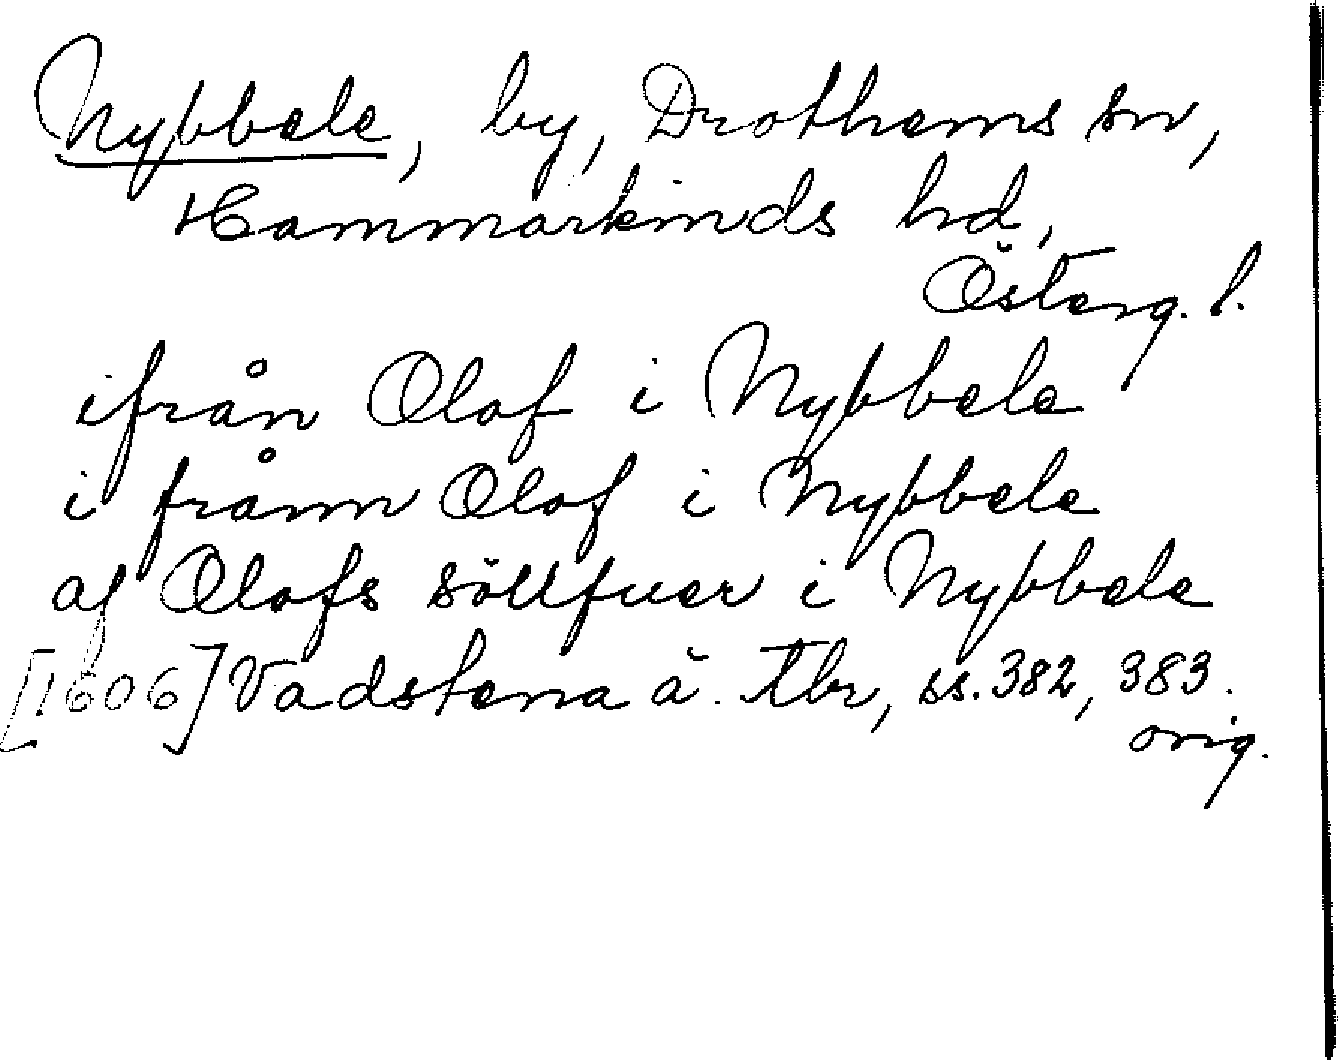 Nybbele, by, Drothems sn,
Hammarkinds hd,
Österg. l.
ifrån Olof i Nybbele
i frånn Olof i Nybbele
af Olofs söllfuer i Nybbele
[1606] Vadstena ä. tbr, ss. 382, 383.
orig.